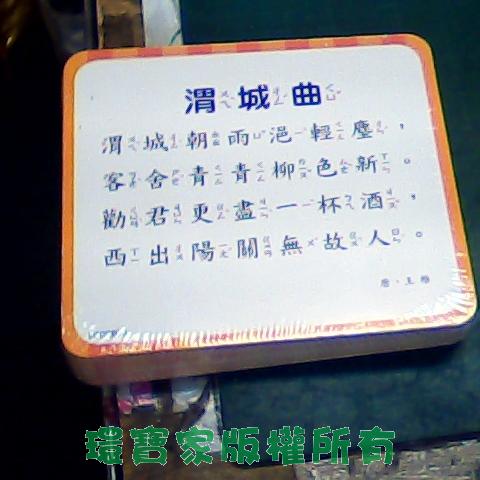 渭城曲
渭城朝雨浥輕塵，
客舍青青柳色新。
勸君更盡一杯酒，
西出陽關無故人。
唐．王維
環寶家版權所有